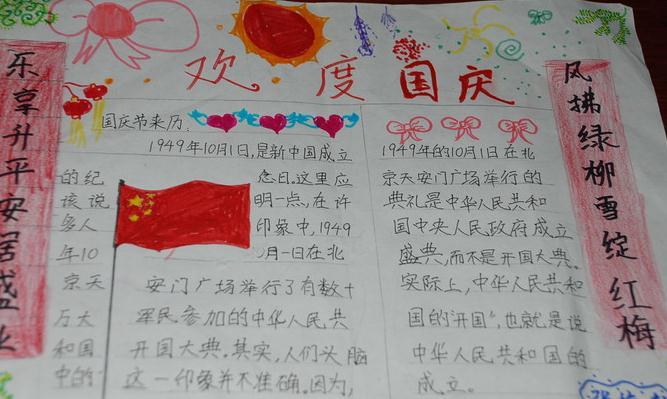 欢度国庆
乐享升平安居盛业
风拂绿柳雪绽红梅
国庆节来历:
1949年10月1日,是新中国成立
的纪念日。这里应
该说明一点,在许
多人印象中,1949
年10月一日在北
京天安门广场举行了有数十
万大军民参加的中华人民共
和国开国大典。其实,人们头脑
中的这一印象并不准确。因为,
1949年的10月1日在北
京天安门广场举行的
典礼是中华人民共和
国中央人民政府成立
盛典,而不是开国大典。
实际上,中华人民共和
国的“开国”,也就是说
中华人民共和国的
成立。